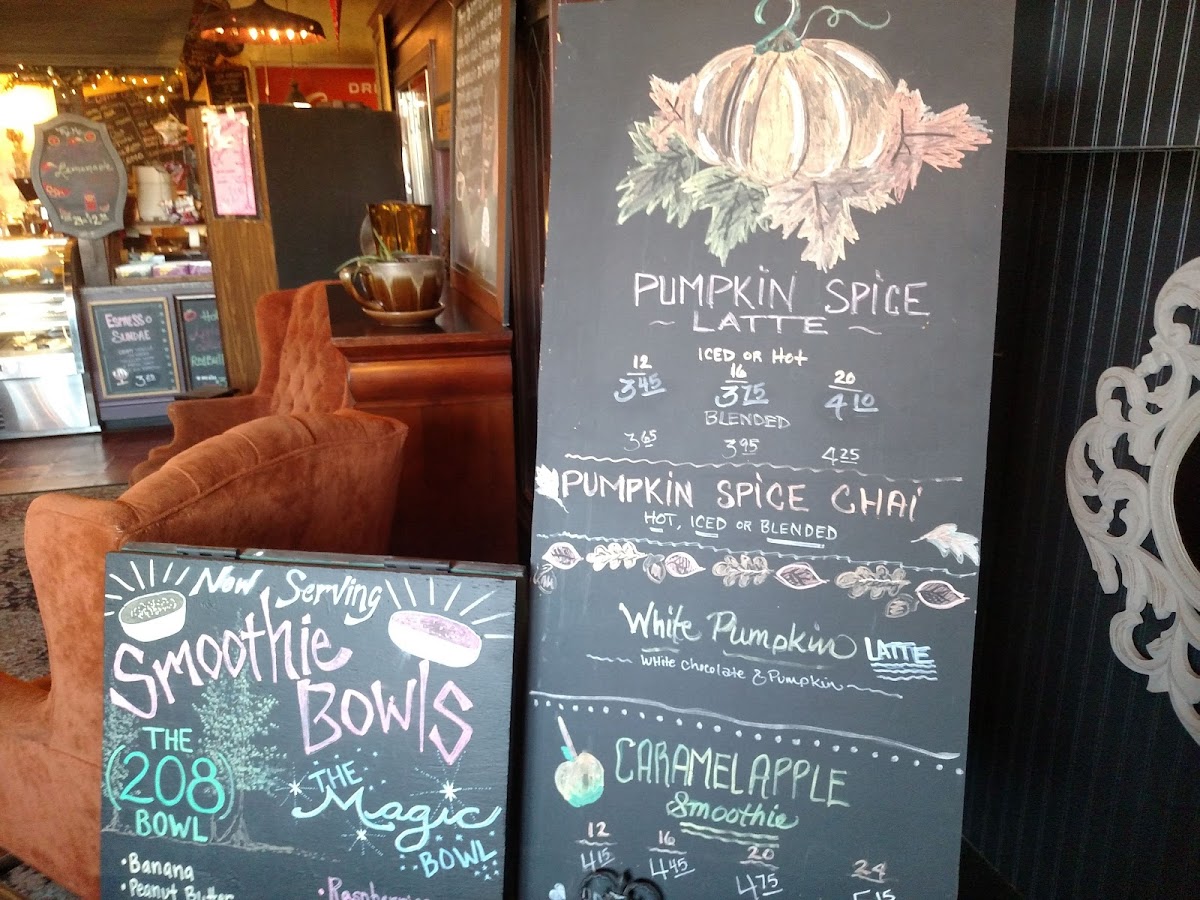 PUMPKIN SPICE
~ LATTE ~
ICED OR HOT
12 16 20
3.45 3.75 4.10
BLENDED
3.65 3.95 4.25
PUMPKIN SPICE CHAI
HOT, ICED OR BLENDED
White Pumpkin LATTE
White Chocolate & Pumpkin
CARAMEL APPLE
Smoothie
12 16 20 24
4.15 4.45 4.75 5.15
Now Serving
Smoothie
BOWLS
THE
(208)
BOWL
•Banana
•Peanut Butter
THE
Magic
BOWL
•Raspberries
Lemonade
ESPRESSO
SUNDAE
3.25
Hot
Red Bull
DRI